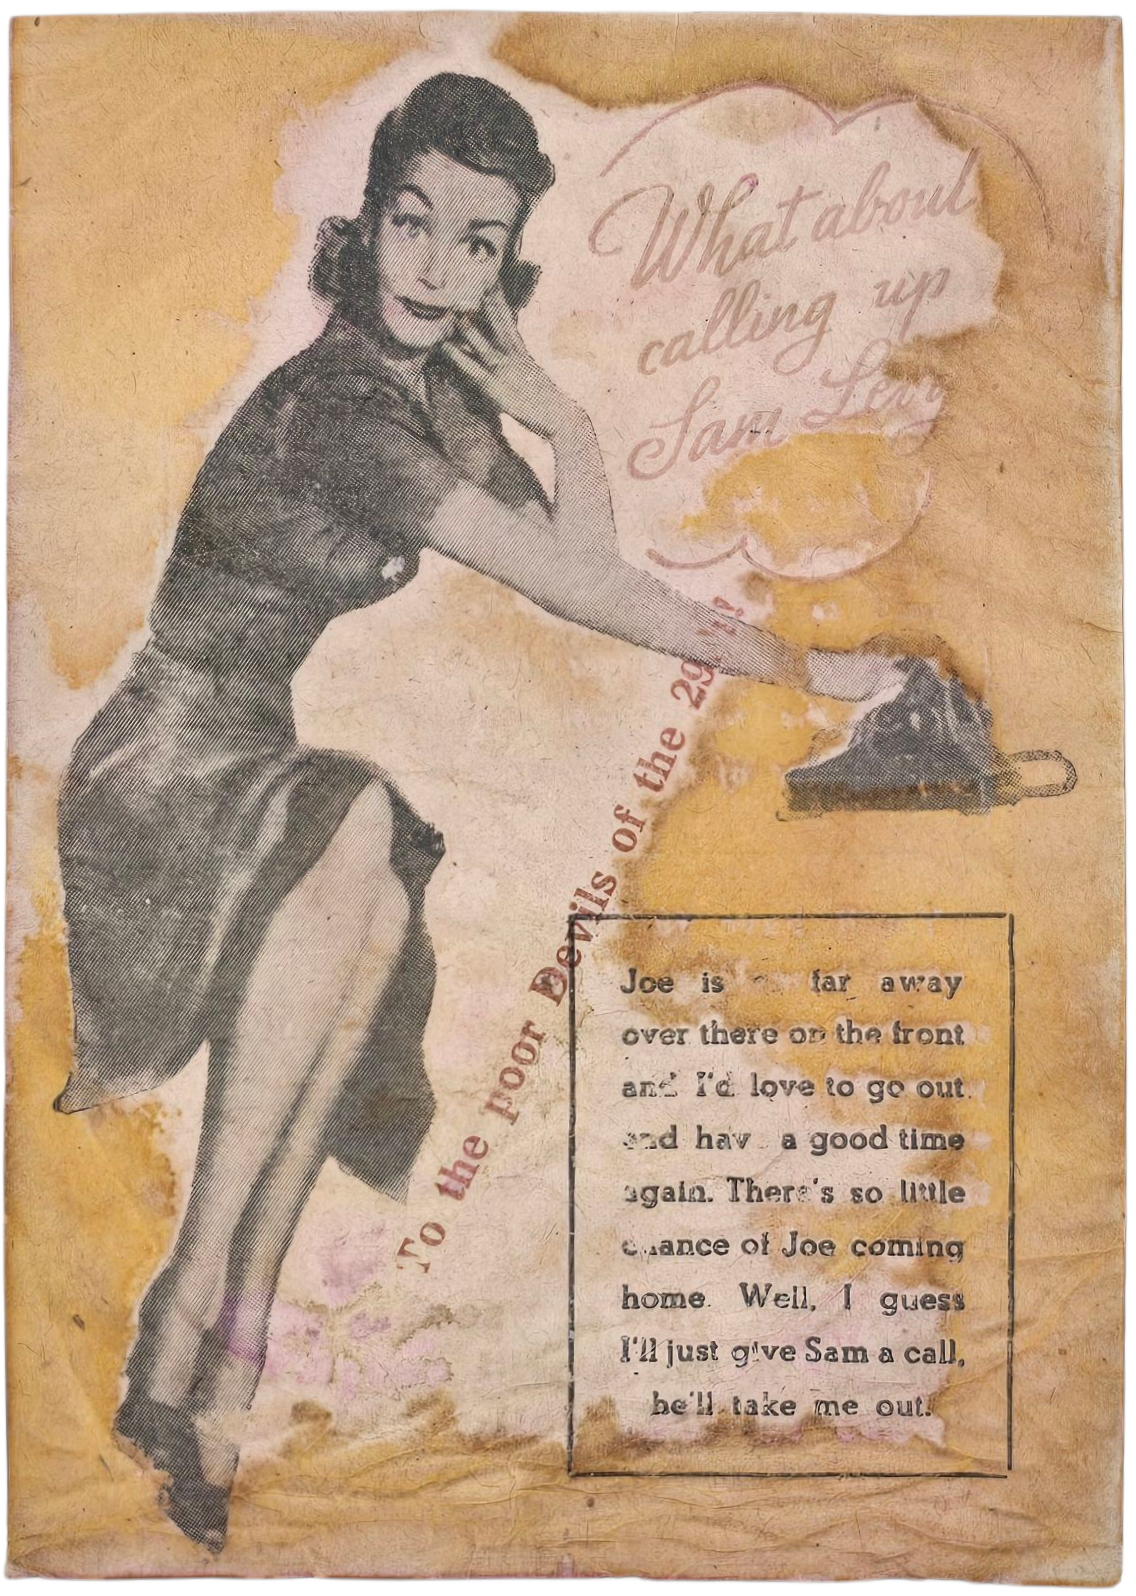 What about
calling up
Sam Levy
To the poor Devils of the 29th!
Joe is far away
over there on the front
and I'd love to go out
and have a good time
again. There's so little
chance of Joe coming
home. Well, I guess
I'll just give Sam a call,
he'll take me out.